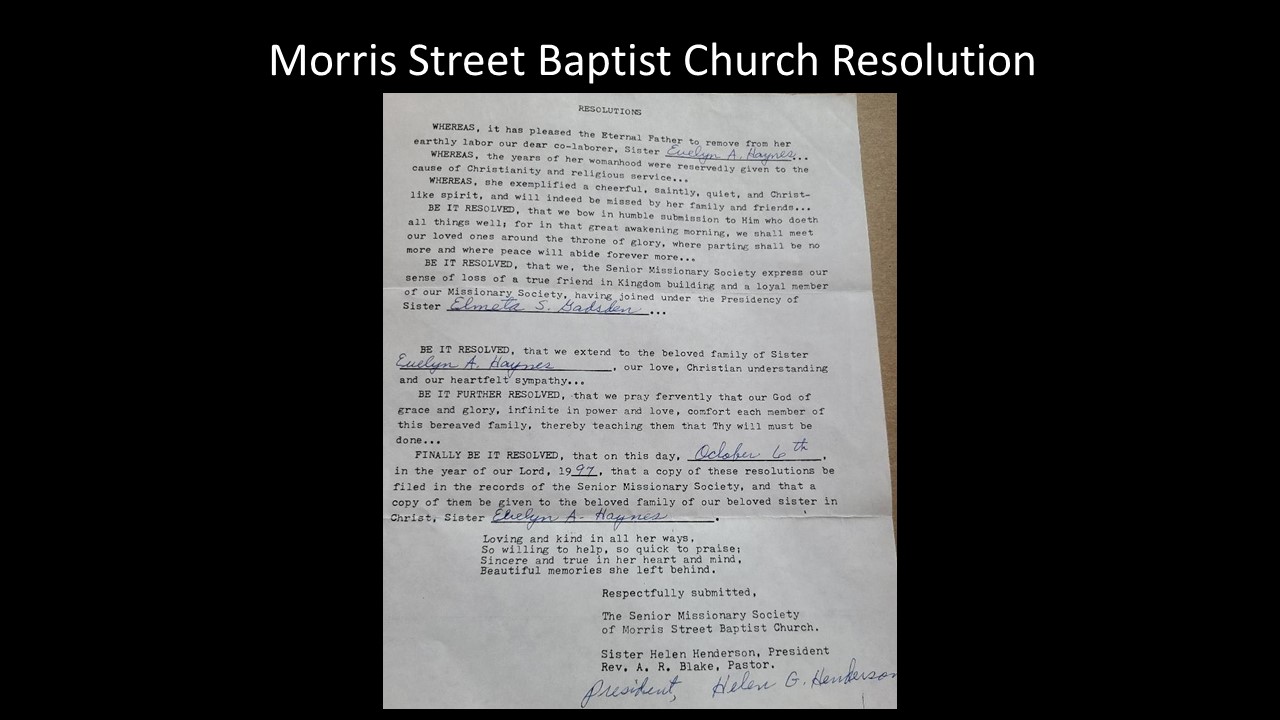 Morris Street Baptist Church Resolution
RESOLUTIONS
WHEREAS, it has pleased the Eternal Father to remove from her
earthly labor our dear co-laborer, Sister Evelyn A. Haynes...
WHEREAS, the years of her womanhood were reservedly given to the
cause of Christianity and religious service...
WHEREAS, she exemplified a cheerful, saintly, quiet, and Christ-
like spirit, and will indeed be missed by her family and friends...
BE IT RESOLVED, that we bow in humble submission to Him who doeth
all things well; for in that great awakening morning, we shall meet
our loved ones around the throne of glory, where parting shall be no
more and where peace will abide forever more...
BE IT RESOLVED, that we, the Senior Missionary Society express our
sense of loss of a true friend in Kingdom building and a loyal member
of our Missionary Society, having joined under the Presidency of
Sister Elmeta S. Gadsden...
BE IT RESOLVED, that we extend to the beloved family of Sister
Evelyn A. Haynes, our love, Christian understanding
and our heartfelt sympathy...
BE IT FURTHER RESOLVED, that we pray fervently that our God of
grace and glory, infinite in power and love, comfort each member of
this bereaved family, thereby teaching them that Thy will must be
done...
FINALLY BE IT RESOLVED, that on this day, October 6th,
in the year of our Lord, 1997, that a copy of these resolutions be
filed in the records of the Senior Missionary Society, and that a
copy of them be given to the beloved family of our beloved sister in
Christ, Sister Evelyn A. Haynes.
Loving and kind in all her ways,
So willing to help, so quick to praise;
Sincere and true in her heart and mind,
Beautiful memories she left behind.
Respectfully submitted,
The Senior Missionary Society
of Morris Street Baptist Church.
Sister Helen Henderson, President
Rev. A. R. Blake, Pastor.
President, Helen G. Henderson